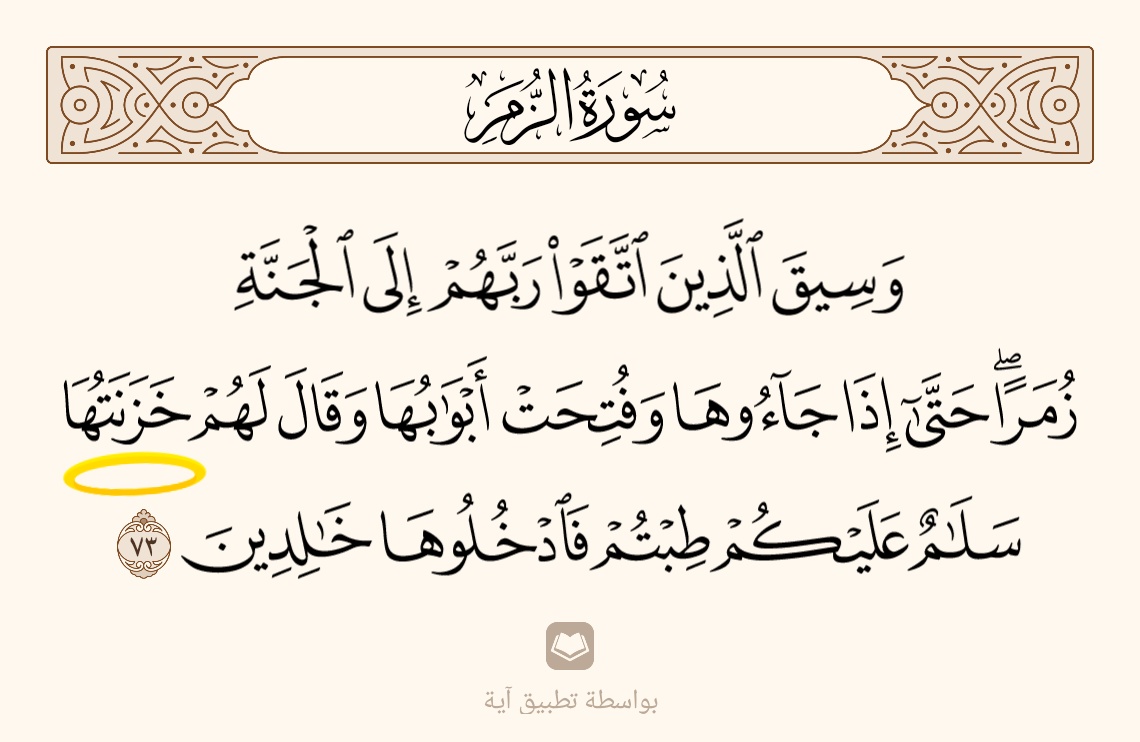 سُورَةُ الزُّمَرِ
وَسِيقَ ٱلَّذِينَ ٱتَّقَوْا۟ رَبَّهُمْ إِلَى ٱلْجَنَّةِ
زُمَرًا ۖ حَتَّىٰٓ إِذَا جَآءُوهَا وَفُتِحَتْ أَبْوَٰبُهَا وَقَالَ لَهُمْ خَزَنَتُهَا
سَلَـٰمٌ عَلَيْكُمْ طِبْتُمْ فَٱدْخُلُوهَا خَـٰلِدِينَ ٧٣
بواسطة تطبيق آية